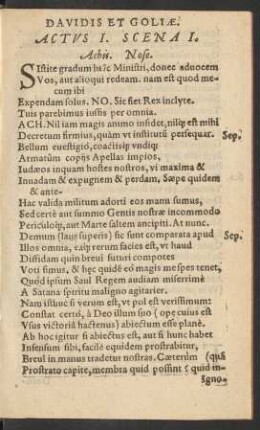 DAVIDIS ET GOLIÆ.
ACTVS I. SCENA I.
Achis. Nose.
SIstite gradum huc Ministri, donec aduocem
Vos, aut alioqui redeam. nam est quod me-
cum ibi
Expendam solus. NO. Sic fiet Rex inclyte.
Tuis parebimus iussis per omnia.
ACH. Nil iam magis animo insidet, nilq; est mihi
Decretum firmius, quàm vt institutũ persequar. Sep.
Bellum euestigiò, coactisq; vndiq;
Armatûm copijs Apellas impios,
Iudæos inquam hostes nostros, vi maxima &
Inuadam & expugnem & perdam, Sæpe quidem
& ante-
Hac valida militum adorti eos manu sumus,
Sed certè aut summo Gentis nostræ incommodo
Periculoq;, aut Marte saltem ancipiti. At nunc.
Demum (laus superis) sic sunt comparata apud Sep.
Illos omnia, eaq; rerum facies est, vt haud
Diffidam quin breui futuri compotes
Voti simus, & hęc quidē eò magis me spes tenet,
Quòd ipsum Saul Regem audiam miserrimè
A Satana spiritu maligno agitarier.
Nam istuc si verum est, vt pol est verissimum:
Constat certò, à Deo illum suo (ope cuius est
Vsus victoriâ hactenus) abiectum esse planè.
Ab hoc igitur si abiectus est, aut si hunc habet
Infensum sibi, facilè equidem prostrabitur,
Breui in manus tradetur nostras. Cæterùm (quò
Prostrato capite, membra quid possint ? quid in-
signo-